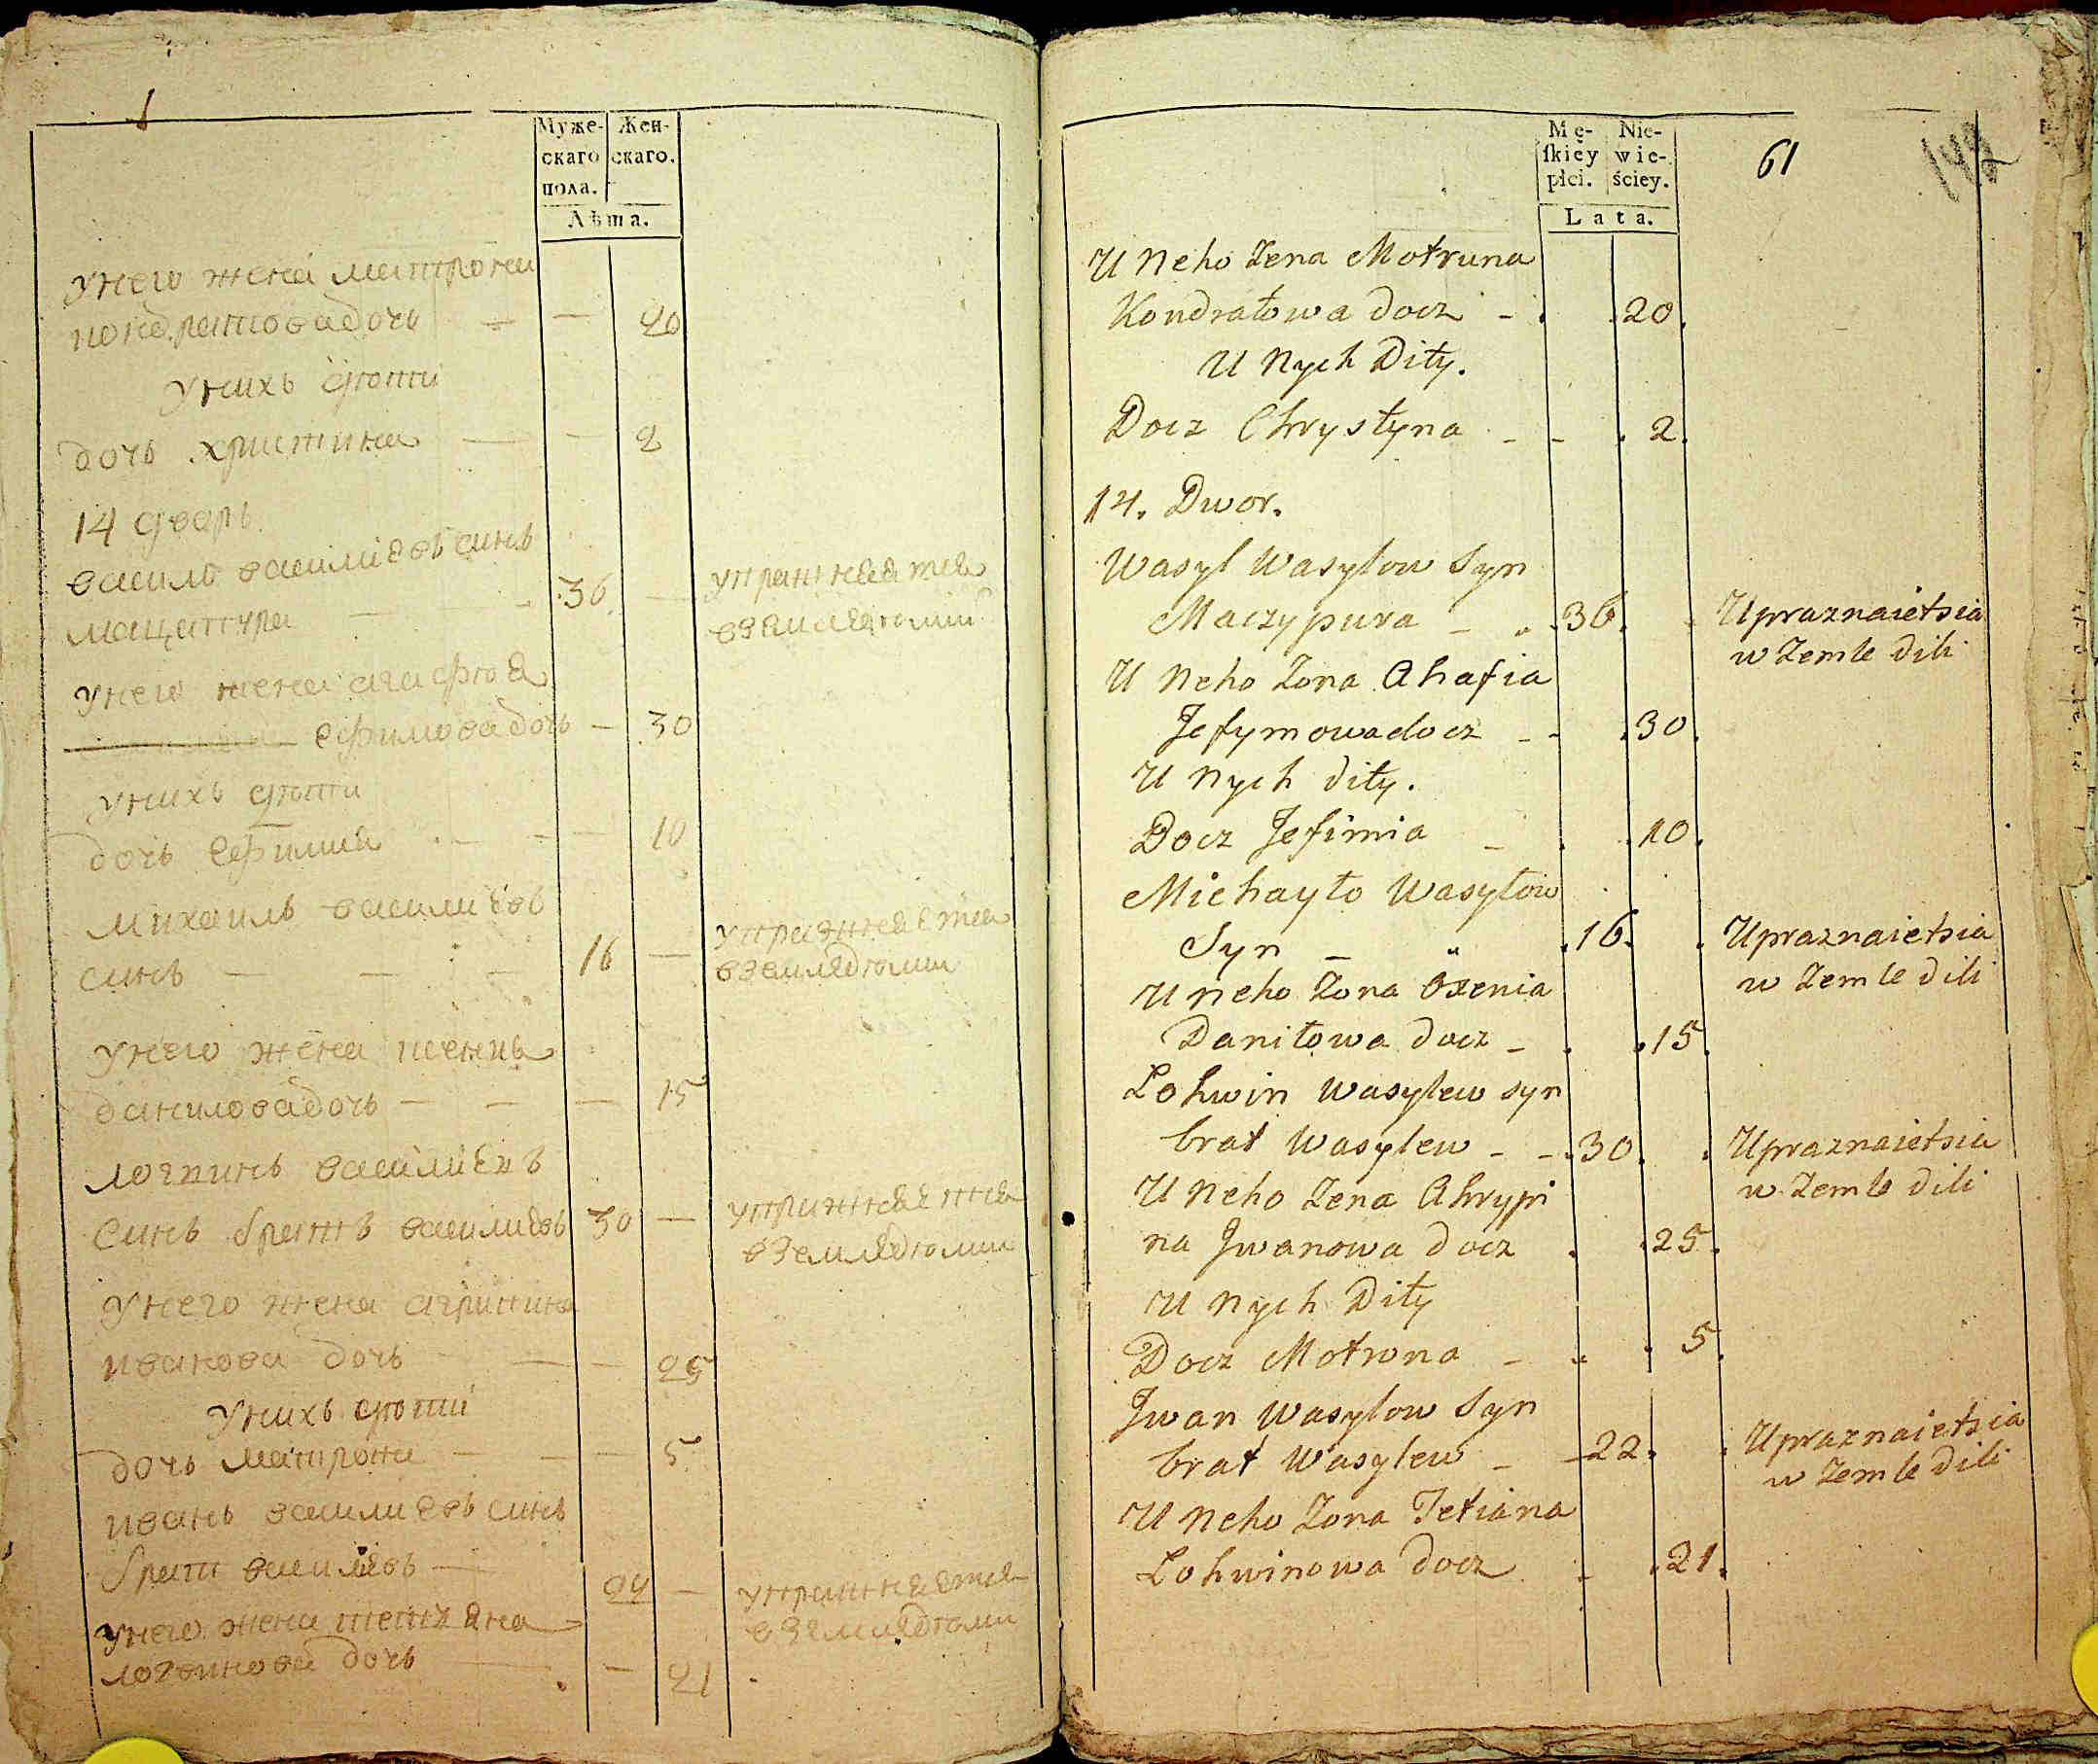 Муже-
скаго
пола.
Жен-
скаго.
Лѣта.
Унего жена матрона
кондратова дочь — — 20
Унихъ дѣти
дочь христина — — 2
14 дворъ
василь василиевъ синъ
мацапура — 36 —
упражняется
вземледѣлии
Унего жена агафия
ефимова дочь — 30
Унихъ дѣти
дочь Ефимия — — 10
Михаилъ василиевъ
синъ — — — 16 —
упражняется
вземледѣлии
Унего жена
данилова дочь — — — 15
логвинъ василиевъ
синъ братъ василиевъ 30 —
упражняется
вземледѣлии
Унего жена агрипина
иванова дочь — — 25
Унихъ дѣти
дочь матрона — — — 5
иванъ василиевъ синъ
братъ василевъ —
упражняется
вземледѣлии
унего жена тетяна
логвинова дочь — — 21
Mę-
ſkiey
płci.
Nie-
wie-
ściey.
Lata.
61
U Neho Zena Motruna
Kondratowa docz - . .20.
U Nych Dity.
Docz Chrystyna - - . 2.
14. Dwor.
Wasyl Wasylow Syn
Maczypura - .36.
Upraznaietsia
w Zemle dili
U Neho Zona Ahafia
Jefymowa docz - - .30.
U Nych dity.
Docz Jefimia - . .10.
Michayło Wasyłow
Syn - " .16. .
Upraznaietsia
w Zemle dili
U neho Zona Oxenia
Daniłowa docz - . .15.
Lohwin Wasylew syn
brat Wasylew - - .30. .
Upraznaietsia
w Zemle dili
U Neho Zena Ahrypi
na Jwanowa docz . .25.
U Nych Dity
Docz Motrona - . . 5.
Jwan Wasylow Syn
brat Wasylew - - 22. .
Upraznaietsia
w Zemle dili
U Neho Zona Tetiana
Lohwinowa docz . .21.